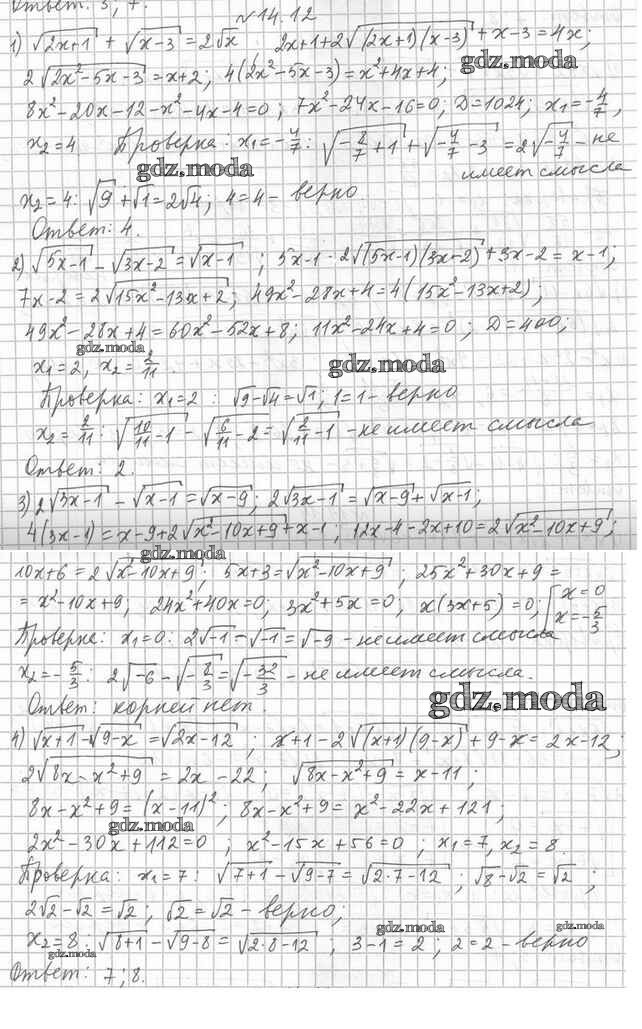 Ответ: 3; 7.
№14.12
1) √(2x+1) + √(x-3) = 2√x, 2x+1+2√((2x+1)(x-3)) + x-3 = 4x;
gdz.moda
2√(2x²-5x-3) = x+2; 4(2x²-5x-3) = x²+4x+4;
8x²-20x-12-x²-4x-4=0; 7x²-24x-16=0; D=1024; x₁=-4/7,
x₂=4 Проверка: x₁=-4/7: √(-8/7+1) + √(-4/7-3) = 2√(-4/7) - не
имеет смысла
gdz.moda
x₂=4: √9 + √1 = 2√4; 4=4 - верно
Ответ: 4.
2) √(5x-1) - √(3x-2) = √(x-1); 5x-1-2√((5x-1)(3x-2)) + 3x-2 = x-1;
7x-2 = 2√(15x²-13x+2); 49x²-28x+4=4(15x²-13x+2);
49x²-28x+4=60x²-52x+8; 11x²-24x+4=0; D=400;
gdz.moda
x₁=2, x₂=2/11.
gdz.moda
Проверка: x₁=2: √9-√4=√1; 1=1 - верно
x₂=2/11: √(10/11-1) - √(6/11-2) = √(2/11-1) - не имеет смысла
Ответ: 2.
3) 2√(3x-1) - √(x-1) = √(x-9); 2√(3x-1) = √(x-9) + √(x-1);
4(3x-1) = x-9+2√(x²-10x+9)+x-1; 12x-4-2x+10=2√(x²-10x+9);
gdz.moda
10x+6=2√(x²-10x+9); 5x+3=√(x²-10x+9); 25x²+30x+9=
=x²-10x+9; 24x²+40x=0; 3x²+5x=0; x(3x+5)=0; [x=0
x=-5/3
Проверка: x₁=0: 2√-1-√-1=√-9 - не имеет смысла
x₂=-5/3: 2√-6 - √(-8/3) = √(-32/3) - не имеет смысла.
gdz.moda
Ответ: корней нет.
4) √(x+1) - √(9-x) = √(2x-12); x+1-2√((x+1)(9-x)) + 9-x = 2x-12;
2√(8x-x²+9) = 2x-22; √(8x-x²+9) = x-11;
8x-x²+9=(x-11)²; 8x-x²+9=x²-22x+121;
gdz.moda
2x²-30x+112=0; x²-15x+56=0; x₁=7, x₂=8.
Проверка: x₁=7: √(7+1) - √(9-7) = √(2·7-12); √8-√2=√2;
2√2-√2=√2; √2=√2 - верно;
gdz.moda
gdz.moda
x₂=8: √(8+1) - √(9-8) = √(2·8-12); 3-1=2; 2=2 - верно
gdz.moda
Ответ: 7; 8.